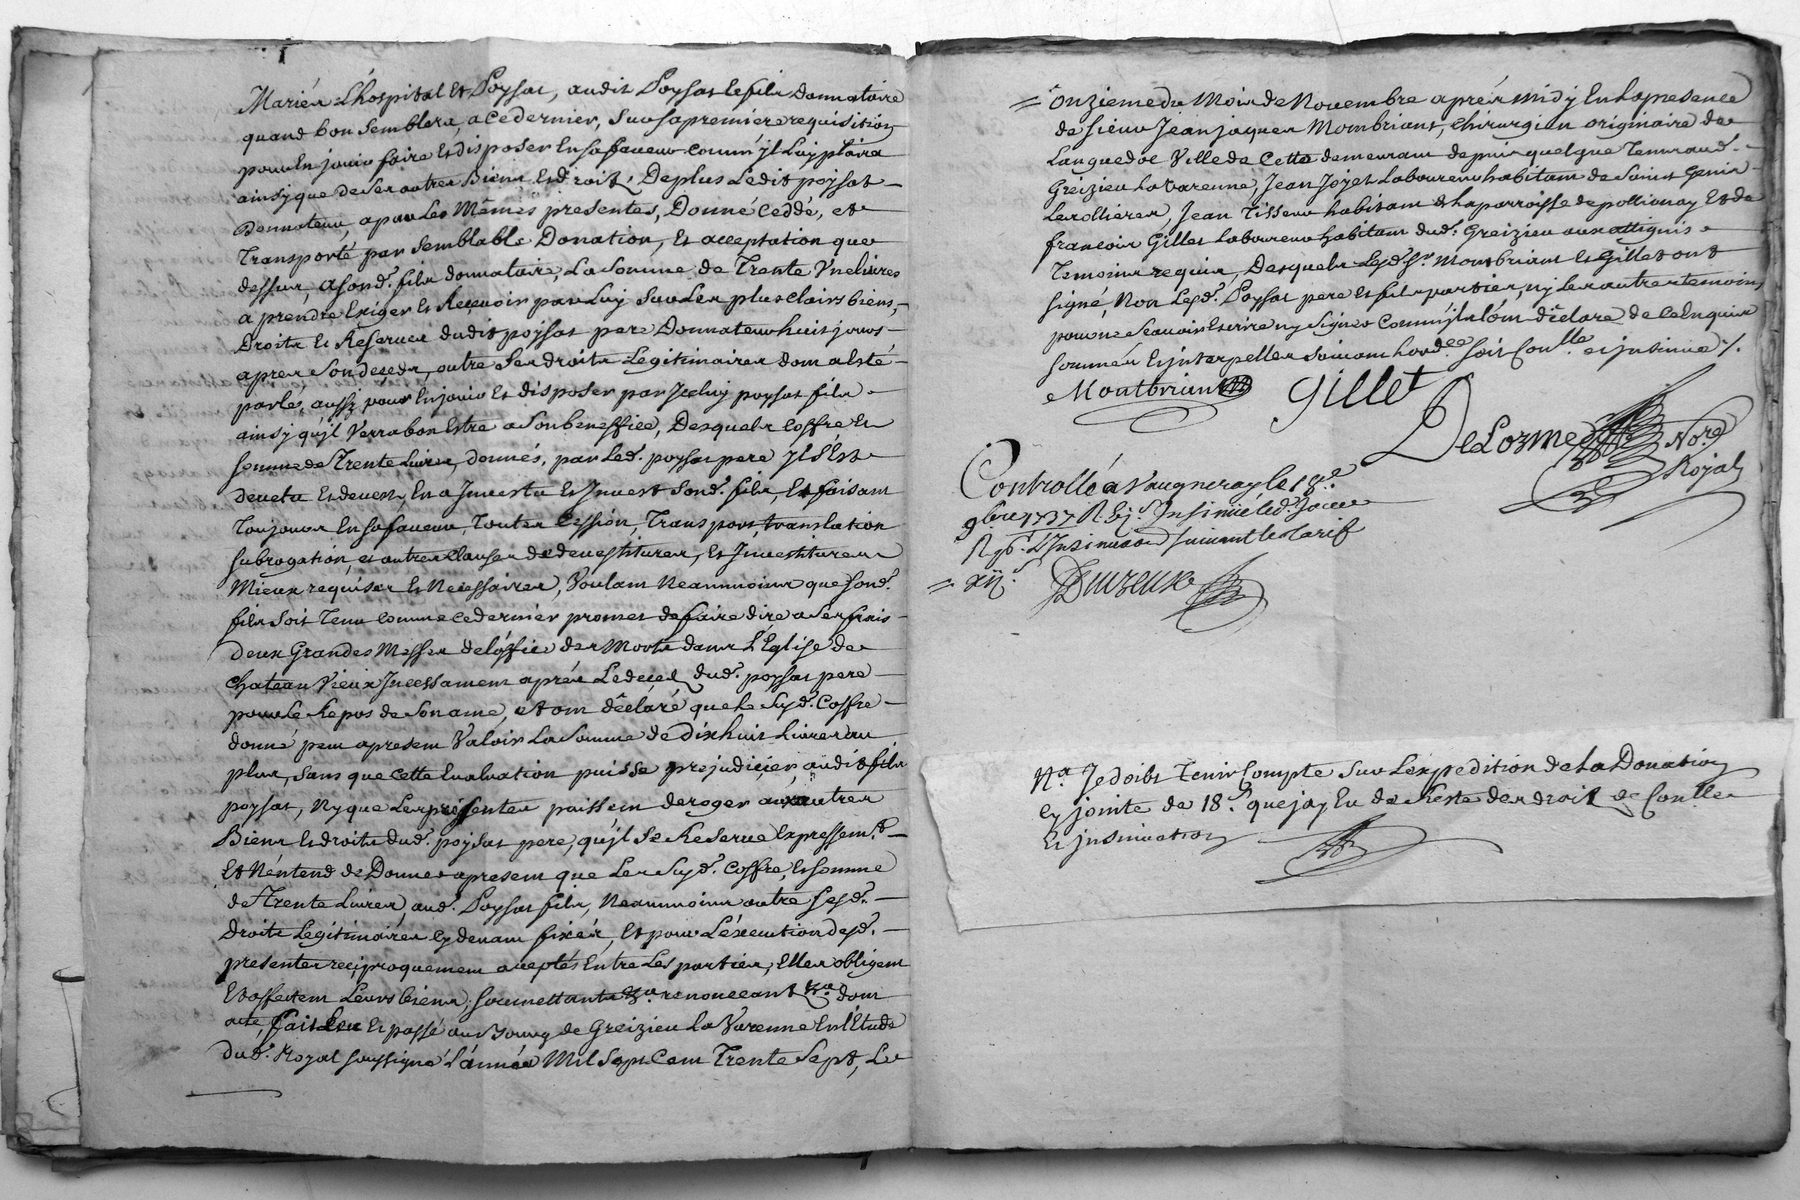 Mariés L'hospital Et Poysat, audit Poysat le fils Donnataire
quand bon semblera, a ce dernier, sur sa premiere requisition
pour En jouir faire Et disposer En sa faveur comm'jl Luy plaira
ainsy que de ses autres Biens Et droits, De plus Ledit poysat
Donnateur, a par Les Mêmes presentes, Donné Ceddé, et
Transporté par semblable Donation, Et acceptation que
dessus, a sond. fils donnataire, La Somme de Trente Une livres
a prendre Exiger Et Recevoir par Luy Sur Les plus clairs biens,
Droits Et Reserves dudit poysat pere Donnateur huit jours
apres Son deceds, outre Ses droits Legitimaires dont a Esté
parlé, aussy pour En jouir Et disposer par Jceluy poysat fils
ainsy qu'jl Verra bon Estre a Son beneffice, Desquels Coffre Et
somme de Trente Livres, donnés, par Led. poysat pere jl s'Est
devetu Et devest, En a Jnvestu Et Jnvest Sond. fils, Et faisant
Toujours En sa faveur, Toutes Cession, Transport, translation
Subrogation, et autres clauses de devestitures, Et Jnvestitures
Mieux requises Et Necessaires, Voulant Neanmoins que Sond.
fils Soit Tenu comme ce dernier promet de faire dire a Ses frais
Deux Grandes Messes de l'office des Morts dans L'Eglise de
Chateau Vieux Jncessament aprés Le deceds dud. poysat pere
pour Le Repos de Son ame, et ont dêclaré que Le Susd. Coffre
donné peut apresent Valoir La Somme de dix huit Livres au
plus, Sans que cette Evaluation puisse prejudicier, audit fils
poysat, Ny que Les presentes puissent deroger aux autres
Biens Et droits dud. poysat pere, qu'jl Se Reserve Expressemt.
Et N'entend de Donner apresent que Les Susd. Coffre, Et somme
de Trente Livres, aud. Poysat fils, Neanmoins outre Sesd.
Droits Legitimaires cy devant fixés, Et pour L'éxecution desd.
presentes reciproquement aceptés Entre Les parties, Elles obligent
Et affectent Leurs biens; soumettants &a. renonceant &a. dont
acte, fait Leu Et passé au Bourg de Greizieu La Varenne En L'Etude
dud. Royal soussigné L'année Mil Sept Cent Trente Sept, Le
Onzieme du Mois de Novembre aprés midy En la presence
de Sieur Jean Jaques Mombriant, Chirurgien originaire de
Languedoc Ville de Cette demeurant depuis quelque Tems aud.
Greizieu La Varenne, Jean Joyet Laboureur habitant de Saint Genis
Lerollieres, Jean Tisseur habitant de La parroisse de pollionay Et de
francois Gillet Laboureur habitant dud. Greizieu
Temoins requis, Desquels Lesd. Srs. Montbriant Et Gillet ont
signé, Non Lesd. Poysat pere Et fils parties, ny Les autres temoins
pour ne Scavoir Ecrire ny Signer Comm'jls L'ont dêclaré de ce Enquis
sommés Et jnterpellés Soit Conllé. et jnsinué /.
Montbriant Gillet
DeLorme Nore.
Royal
Controllé a Vaugneray le 18e.
9bre 1737 R.
suivant le tarif
= xijs.
Na. Je doibt Tenir Compte Sur L'expedition de La Donation
cy jointe de 18s. que j'ay Eu de Reste des droit de Conlle
Et jnsinuation